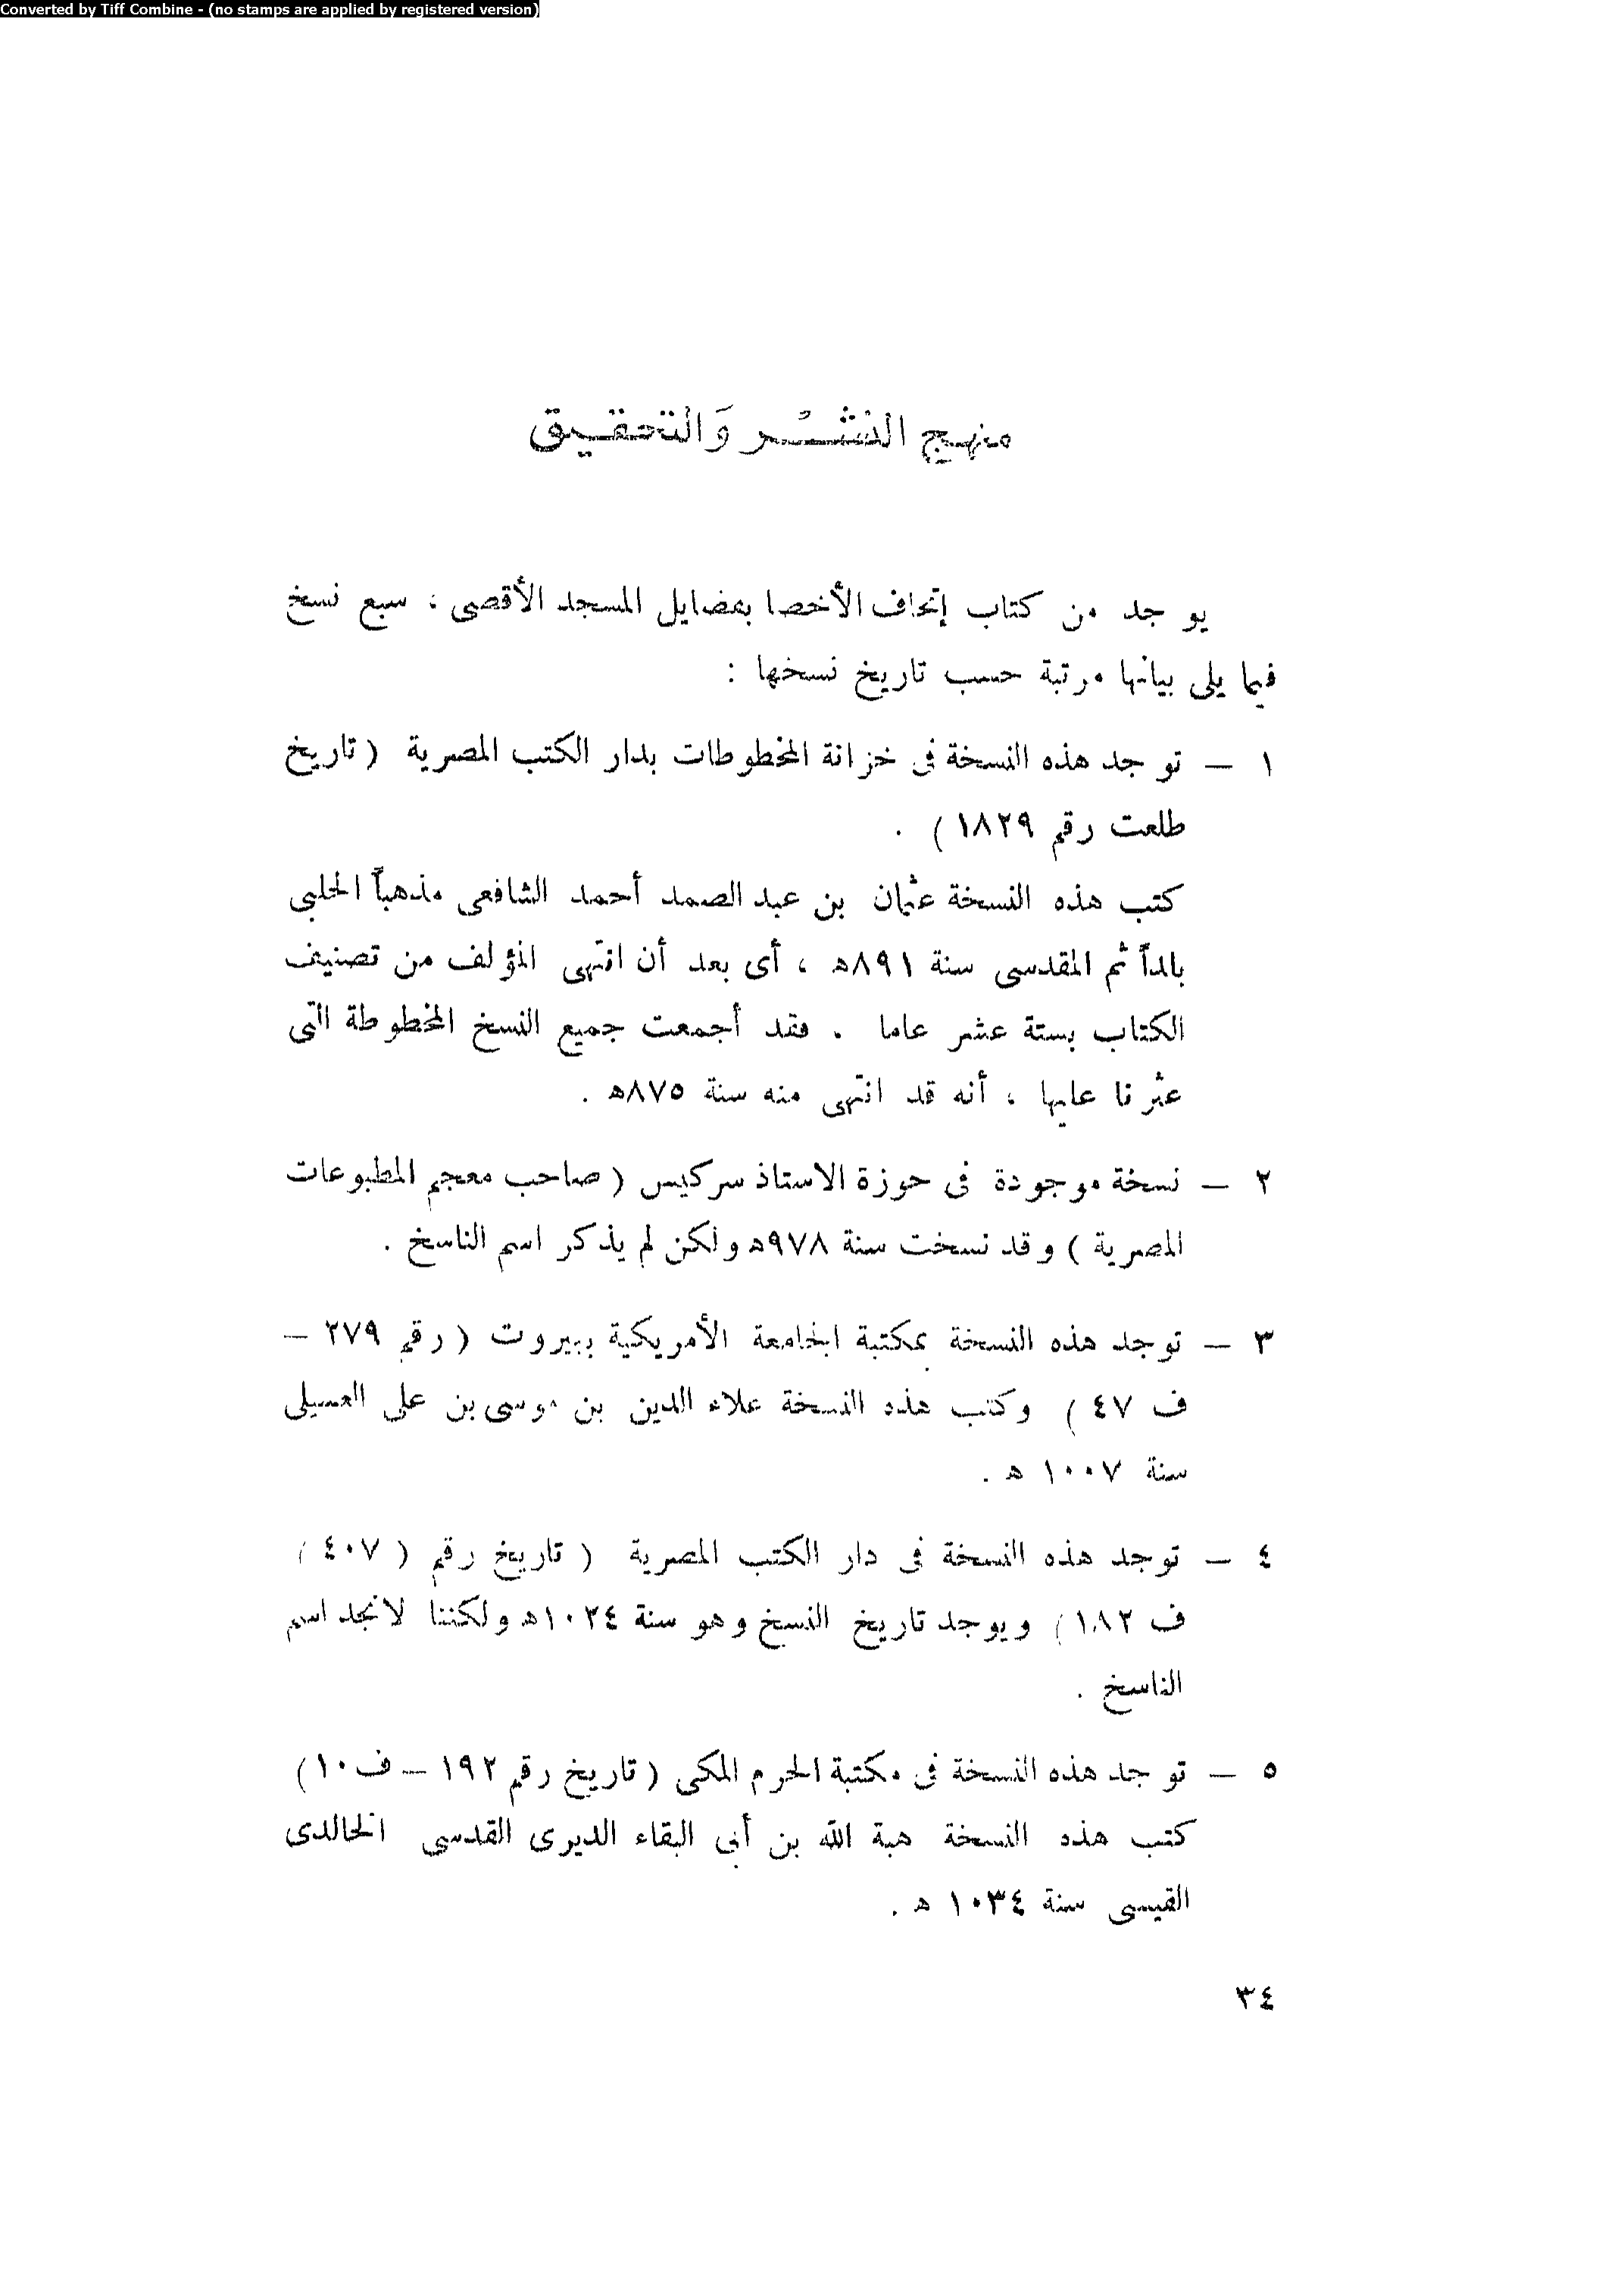 Converted by Tiff Combine - (no stamps are applied by registered version)
منهج النشْر وَالتحقيق
يوجد من كتاب إتحاف الأخصا بفضايل المسجد الأقصى ، سبع نسخ
فيما يلى بيانها مرتبة حسب تاريخ نسخها :
١ — توجد هذه النسخة فى خزانة المخطوطات بدار الكتب المصرية ( تاريخ
طلعت رقم ١٨٢٩ ) .
كتب هذه النسخة عثمان بن عبد الصمد أحمد الشافعى مذهباً الحلبى
بلداً ثم المقدسى سنة ٨٩١ه ، أى بعد أن انتهى المؤلف من تصنيف
الكتاب بستة عشر عاما . فقد أجمعت جميع النسخ المخطوطة التى
عثرنا عليها ، أنه قد انتهى منه سنة ٨٧٥ه .
٢ — نسخة موجودة فى حوزة الاستاذ سركيس ( صاحب معجم المطبوعات
المصرية ) وقد نسخت سنة ٩٧٨ه ولكن لم يذكر اسم الناسخ .
٣ — توجد هذه النسخة بمكتبة الجامعة الأمريكية ببيروت ( رقم ٢٧٩ —
ف ٤٧ ) وكتب هذه النسخة علاء الدين بن موسى بن على العسيلى
سنة ١٠٠٧ ه .
٤ — توجد هذه النسخة فى دار الكتب المصرية ( تاريخ رقم ( ٤٠٧ )
ف ١٨٢ ) ويوجد تاريخ النسخ وهو سنة ١٠٢٤ه ولكننا لانجد اسم
الناسخ .
٥ — توجد هذه النسخة فى مكتبة الحرم المكى ( تاريخ رقم ١٩٢ — ف ١٠ )
كتب هذه النسخة هبة الله بن أبى البقاء الديرى القدسى الخالدى
القيسى سنة ١٠٣٤ ه .
٣٤